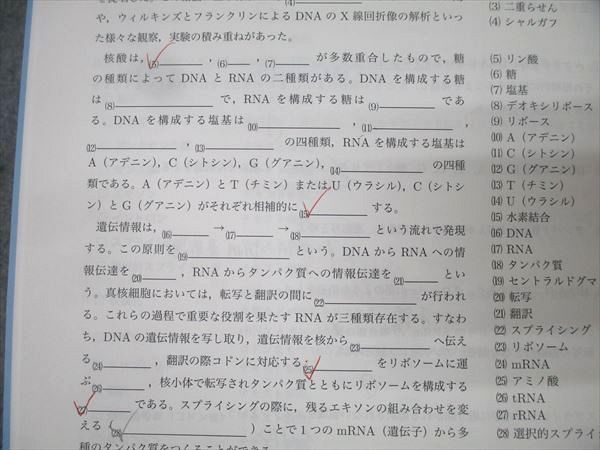 (4)
や，ウィルキンズとフランクリンによる DNA の X 線回折像の解析といっ
た様々な観察，実験の積み重ねがあった。
核酸は，(5)，(6)，(7) が多数重合したもので，糖
の種類によって DNA と RNA の二種類がある。DNA を構成する糖
は (8) で，RNA を構成する糖は (9) であ
る。DNA を構成する塩基は (10)，(11)，
(12)，(13) の四種類，RNA を構成する塩基は
A（アデニン），C（シトシン），G（グアニン），(14) の四種
類である。A（アデニン）と T（チミン）または U（ウラシル），C（シトシ
ン）と G（グアニン）がそれぞれ相補的に (15) する。
遺伝情報は，(16) → (17) → (18) という流れで発現
する。この原則を (19) という。DNA から RNA への情
報伝達を (20)，RNA からタンパク質への情報伝達を (21) とい
う。真核細胞においては，転写と翻訳の間に (22) が行われ
る。これらの過程で重要な役割を果たす RNA が三種類存在する。すなわ
ち，DNA の遺伝情報を写し取り，遺伝情報を核から (23) へ伝え
る (24)，翻訳の際コドンに対応する (25) をリボソームに運
ぶ (26)，核小体で転写されタンパク質とともにリボソームを構成する
(27) である。スプライシングの際に，残るエキソンの組み合わせを変
える（(28)）ことで 1 つの mRNA（遺伝子）から多
種のタンパク質をつくることができる
(3) 二重らせん
(4) シャルガフ
(5) リン酸
(6) 糖
(7) 塩基
(8) デオキシリボース
(9) リボース
(10) A（アデニン）
(11) C（シトシン）
(12) G（グアニン）
(13) T（チミン）
(14) U（ウラシル）
(15) 水素結合
(16) DNA
(17) RNA
(18) タンパク質
(19) セントラルドグマ
(20) 転写
(21) 翻訳
(22) スプライシング
(23) リボソーム
(24) mRNA
(25) アミノ酸
(26) tRNA
(27) rRNA
(28) 選択的スプライ